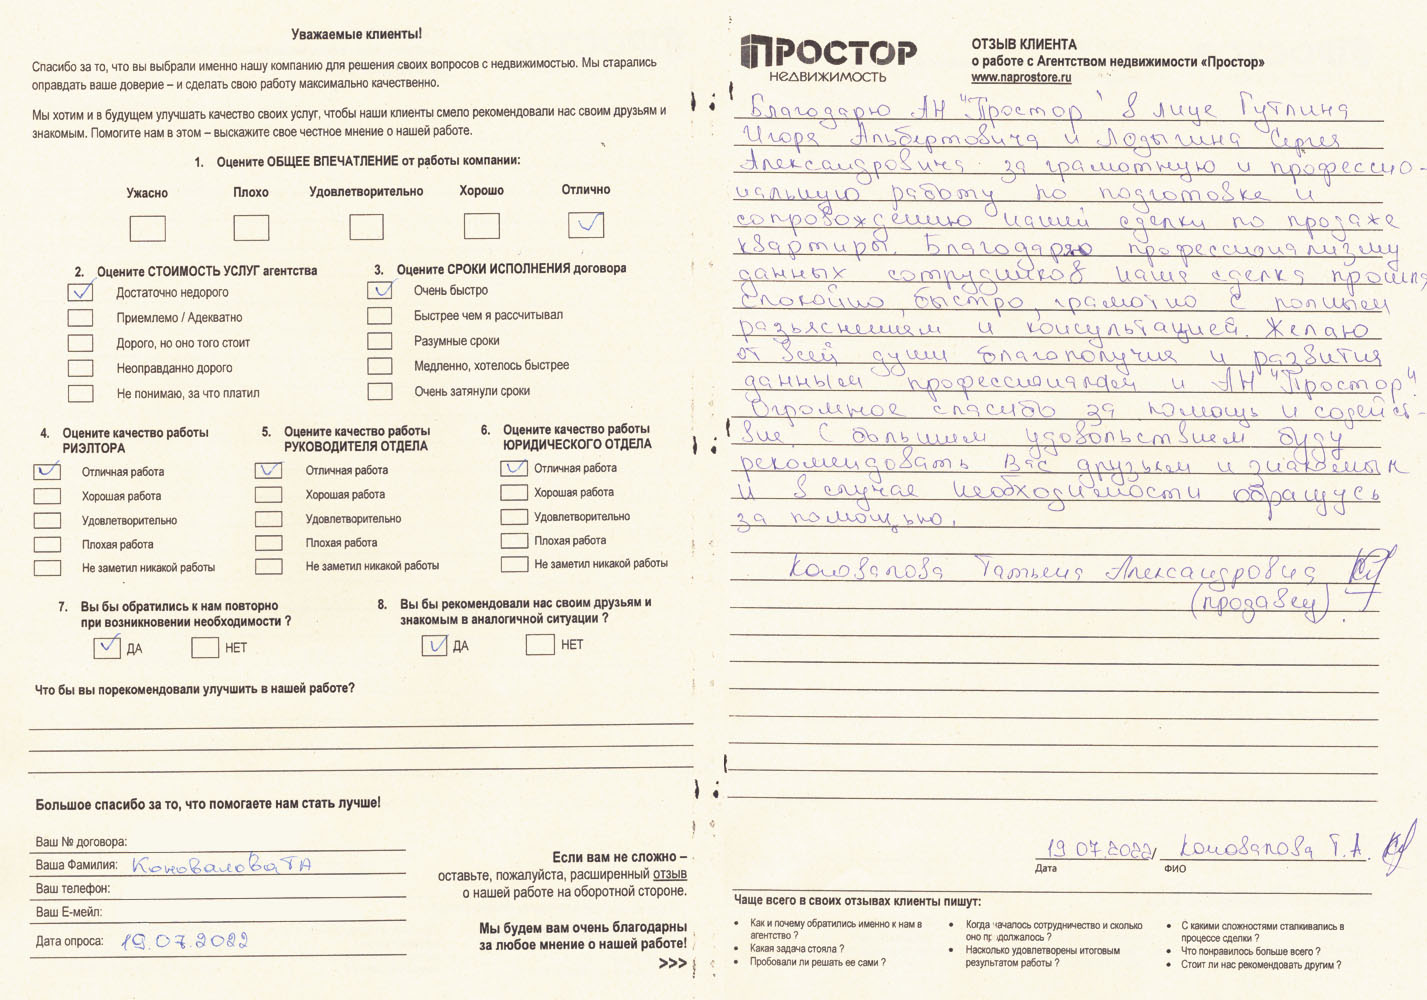 Уважаемые клиенты!
Спасибо за то, что вы выбрали именно нашу компанию для решения своих вопросов с недвижимостью. Мы старались
оправдать ваше доверие – и сделать свою работу максимально качественно.
Мы хотим и в будущем улучшать качество своих услуг, чтобы наши клиенты смело рекомендовали нас своим друзьям и
знакомым. Помогите нам в этом – выскажите свое честное мнение о нашей работе.
1. Оцените ОБЩЕЕ ВПЕЧАТЛЕНИЕ от работы компании:
Ужасно Плохо Удовлетворительно Хорошо Отлично
2. Оцените СТОИМОСТЬ УСЛУГ агентства
Достаточно недорого
Приемлемо / Адекватно
Дорого, но оно того стоит
Неоправданно дорого
Не понимаю, за что платил
3. Оцените СРОКИ ИСПОЛНЕНИЯ договора
Очень быстро
Быстрее чем я рассчитывал
Разумные сроки
Медленно, хотелось быстрее
Очень затянули сроки
4. Оцените качество работы
РИЭЛТОРА
Отличная работа
Хорошая работа
Удовлетворительно
Плохая работа
Не заметил никакой работы
5. Оцените качество работы
РУКОВОДИТЕЛЯ ОТДЕЛА
Отличная работа
Хорошая работа
Удовлетворительно
Плохая работа
Не заметил никакой работы
6. Оцените качество работы
ЮРИДИЧЕСКОГО ОТДЕЛА
Отличная работа
Хорошая работа
Удовлетворительно
Плохая работа
Не заметил никакой работы
7. Вы бы обратились к нам повторно
при возникновении необходимости ?
ДА НЕТ
8. Вы бы рекомендовали нас своим друзьям и
знакомым в аналогичной ситуации ?
ДА НЕТ
Что бы вы порекомендовали улучшить в нашей работе?
Большое спасибо за то, что помогаете нам стать лучше!
Ваш № договора:
Ваша Фамилия: Коновалова ТА
Ваш телефон:
Ваш Е-мейл:
Дата опроса: 19.07.2022
Если вам не сложно –
оставьте, пожалуйста, расширенный отзыв
о нашей работе на оборотной стороне.
Мы будем вам очень благодарны
за любое мнение о нашей работе!
>>>
ПРОСТОР
НЕДВИЖИМОСТЬ
ОТЗЫВ КЛИЕНТА
о работе с Агентством недвижимости «Простор»
www.naprostore.ru
Благодарю АН "Простор" в лице Гутлина
Игоря Альбертовича и Лодыгина Сергея
Александровича за грамотную и профессио-
нальную работу по подготовке и
сопровождению нашей сделки по продаже
квартиры. Благодаря профессионализму
данных сотрудников наша сделка прошла
спокойно, быстро, грамотно с полным
разъяснением и консультацией. Желаю
от всей души благополучия и развития
данным профессионалам и АН "Простор".
Огромное спасибо за помощь и содейст-
вие. С большим удовольствием буду
рекомендовать Вас друзьям и знакомым
и в случае необходимости обращусь
за помощью.
Коновалова Татьяна Александровна
(продавец)
19.07.2022 / Коновалова Т.А.
Дата ФИО
Чаще всего в своих отзывах клиенты пишут:
• Как и почему обратились именно к нам в
агентство ?
• Какая задача стояла ?
• Пробовали ли решать ее сами ?
• Когда началось сотрудничество и сколько
оно продолжалось ?
• Насколько удовлетворены итоговым
результатом работы ?
• С какими сложностями сталкивались в
процессе сделки ?
• Что понравилось больше всего ?
• Стоит ли нас рекомендовать другим ?